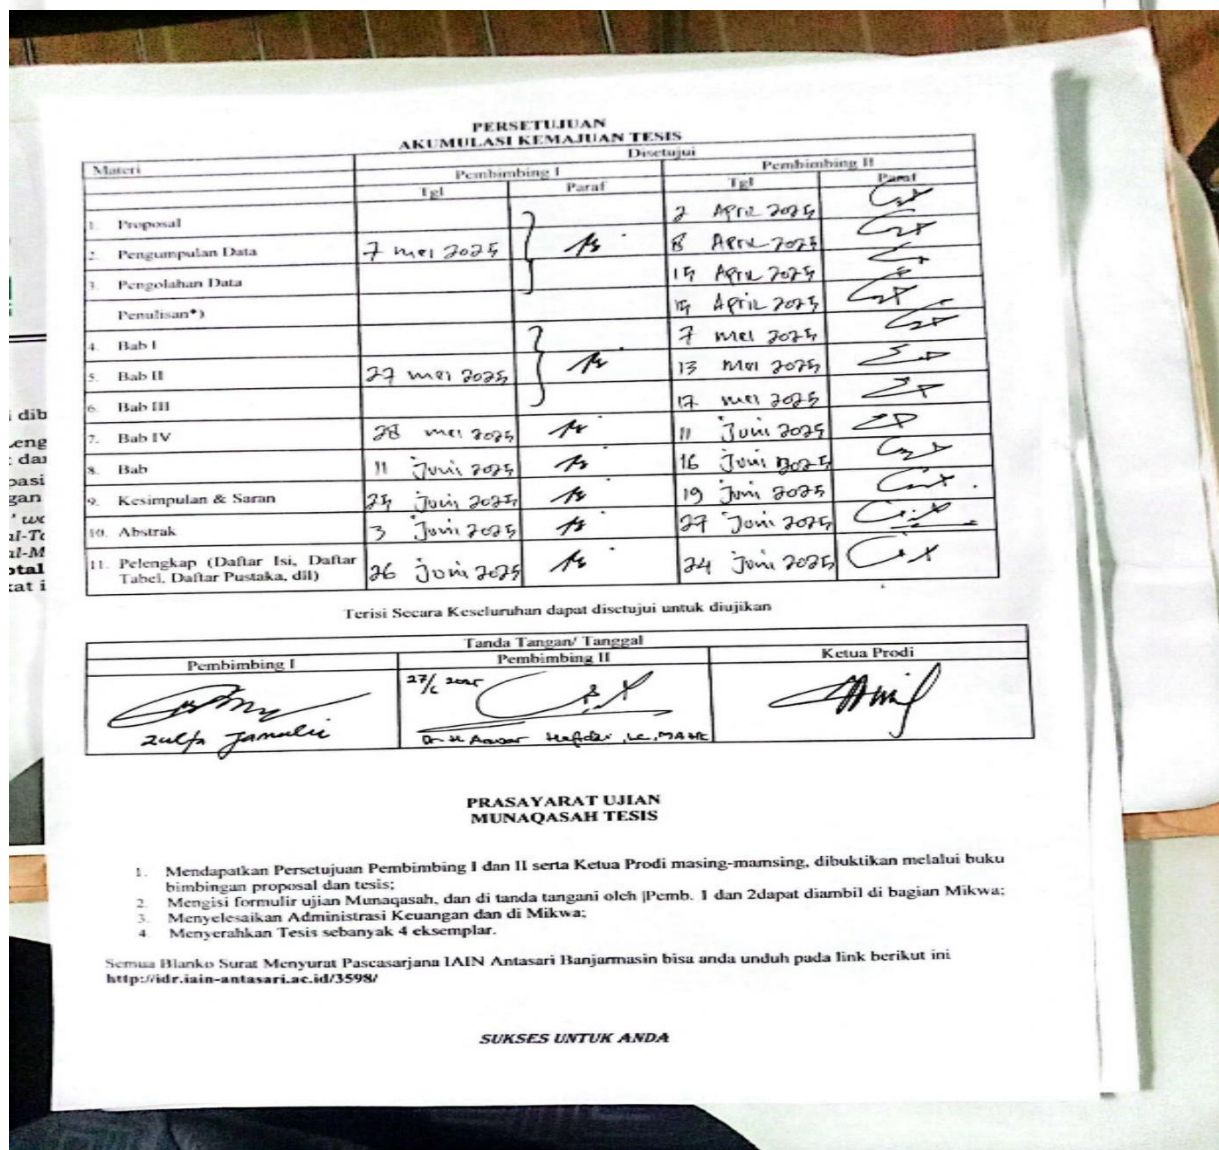 PERSETUJUAN
AKUMULASI KEMAJUAN TESIS
Materi Disetujui
Pembimbing I Pembimbing II
Tgl Paraf Tgl Paraf
1. Proposal 2 April 2025
2. Pengumpulan Data 7 mei 2025 8 April 2025
3. Pengolahan Data 15 April 2025
Penulisan*) 15 April 2025
4. Bab I 7 mei 2025
5. Bab II 27 mei 2025 13 mei 2025
6. Bab III 17 mei 2025
7. Bab IV 28 mei 2025 11 Juni 2025
8. Bab 11 Juni 2025 16 Juni 2025
9. Kesimpulan & Saran 25 Juni 2025 19 Juni 2025
10. Abstrak 3 Juni 2025 27 Juni 2025
11. Pelengkap (Daftar Isi, Daftar
Tabel, Daftar Pustaka, dil) 26 Juni 2025 24 Juni 2025
Terisi Secara Keseluruhan dapat disetujui untuk diujikan
Tanda Tangan/ Tanggal
Pembimbing I Pembimbing II Ketua Prodi
27/6 2025
Zulfa Jamalie Dr. H. Anwar Hafidzi, Lc, MA.HK
PRASAYARAT UJIAN
MUNAQASAH TESIS
1. Mendapatkan Persetujuan Pembimbing I dan II serta Ketua Prodi masing-mamsing, dibuktikan melalui buku
bimbingan proposal dan tesis;
2. Mengisi formulir ujian Munaqasah, dan di tanda tangani oleh |Pemb. 1 dan 2dapat diambil di bagian Mikwa;
3. Menyelesaikan Administrasi Keuangan dan di Mikwa;
4. Menyerahkan Tesis sebanyak 4 eksemplar.
Semua Blanko Surat Menyurat Pascasarjana IAIN Antasari Banjarmasin bisa anda unduh pada link berikut ini
http://idr.iain-antasari.ac.id/3598/
SUKSES UNTUK ANDA